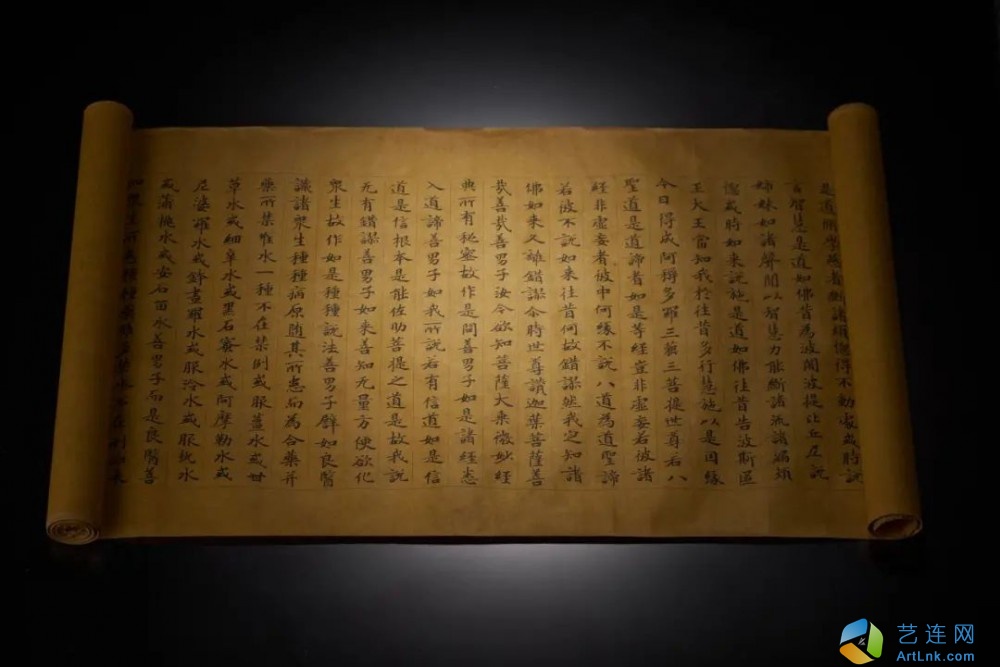 者斷諸煩惱得不動處或時說
智慧是道如佛昔為波闍波提比丘尼說
姊妹如諸聲聞以智慧力能斷諸流諸漏煩
惱或時如來說施是道如佛往昔告波斯匿
王大王當知我於往昔多行惠施以是因緣
今日得成阿耨多羅三藐三菩提世尊若八
聖道是道諦者如是等經豈非虛妄若彼諸
經非虛妄者彼中何緣不說八道為道聖諦
若彼不說如來往昔何故錯謬然我定知諸
佛如來久離錯謬尒時世尊讚迦葉菩薩善
哉善哉善男子汝今欲知菩薩大乘微妙經
典所有秘密故作是問善男子如是諸經悉
入道諦善男子如我所說若有信道如是信
道是信根本是能佐助菩提之道是故我說
无有錯謬善男子如來善知无量方便欲化
眾生故作如是種種說法善男子譬如良醫
識諸眾生種種病原隨其所患而為合藥并
藥所禁唯水一種不在禁例或服薑水或甘
草水或細辛水或黑石蜜水或阿摩勒水或
尼婆羅水或鉢晝羅水或服冷水或服熱水
或蒲桃水或安石留水善男子而是良醫善
眾生所患種種
艺连网
ArtLnk.com